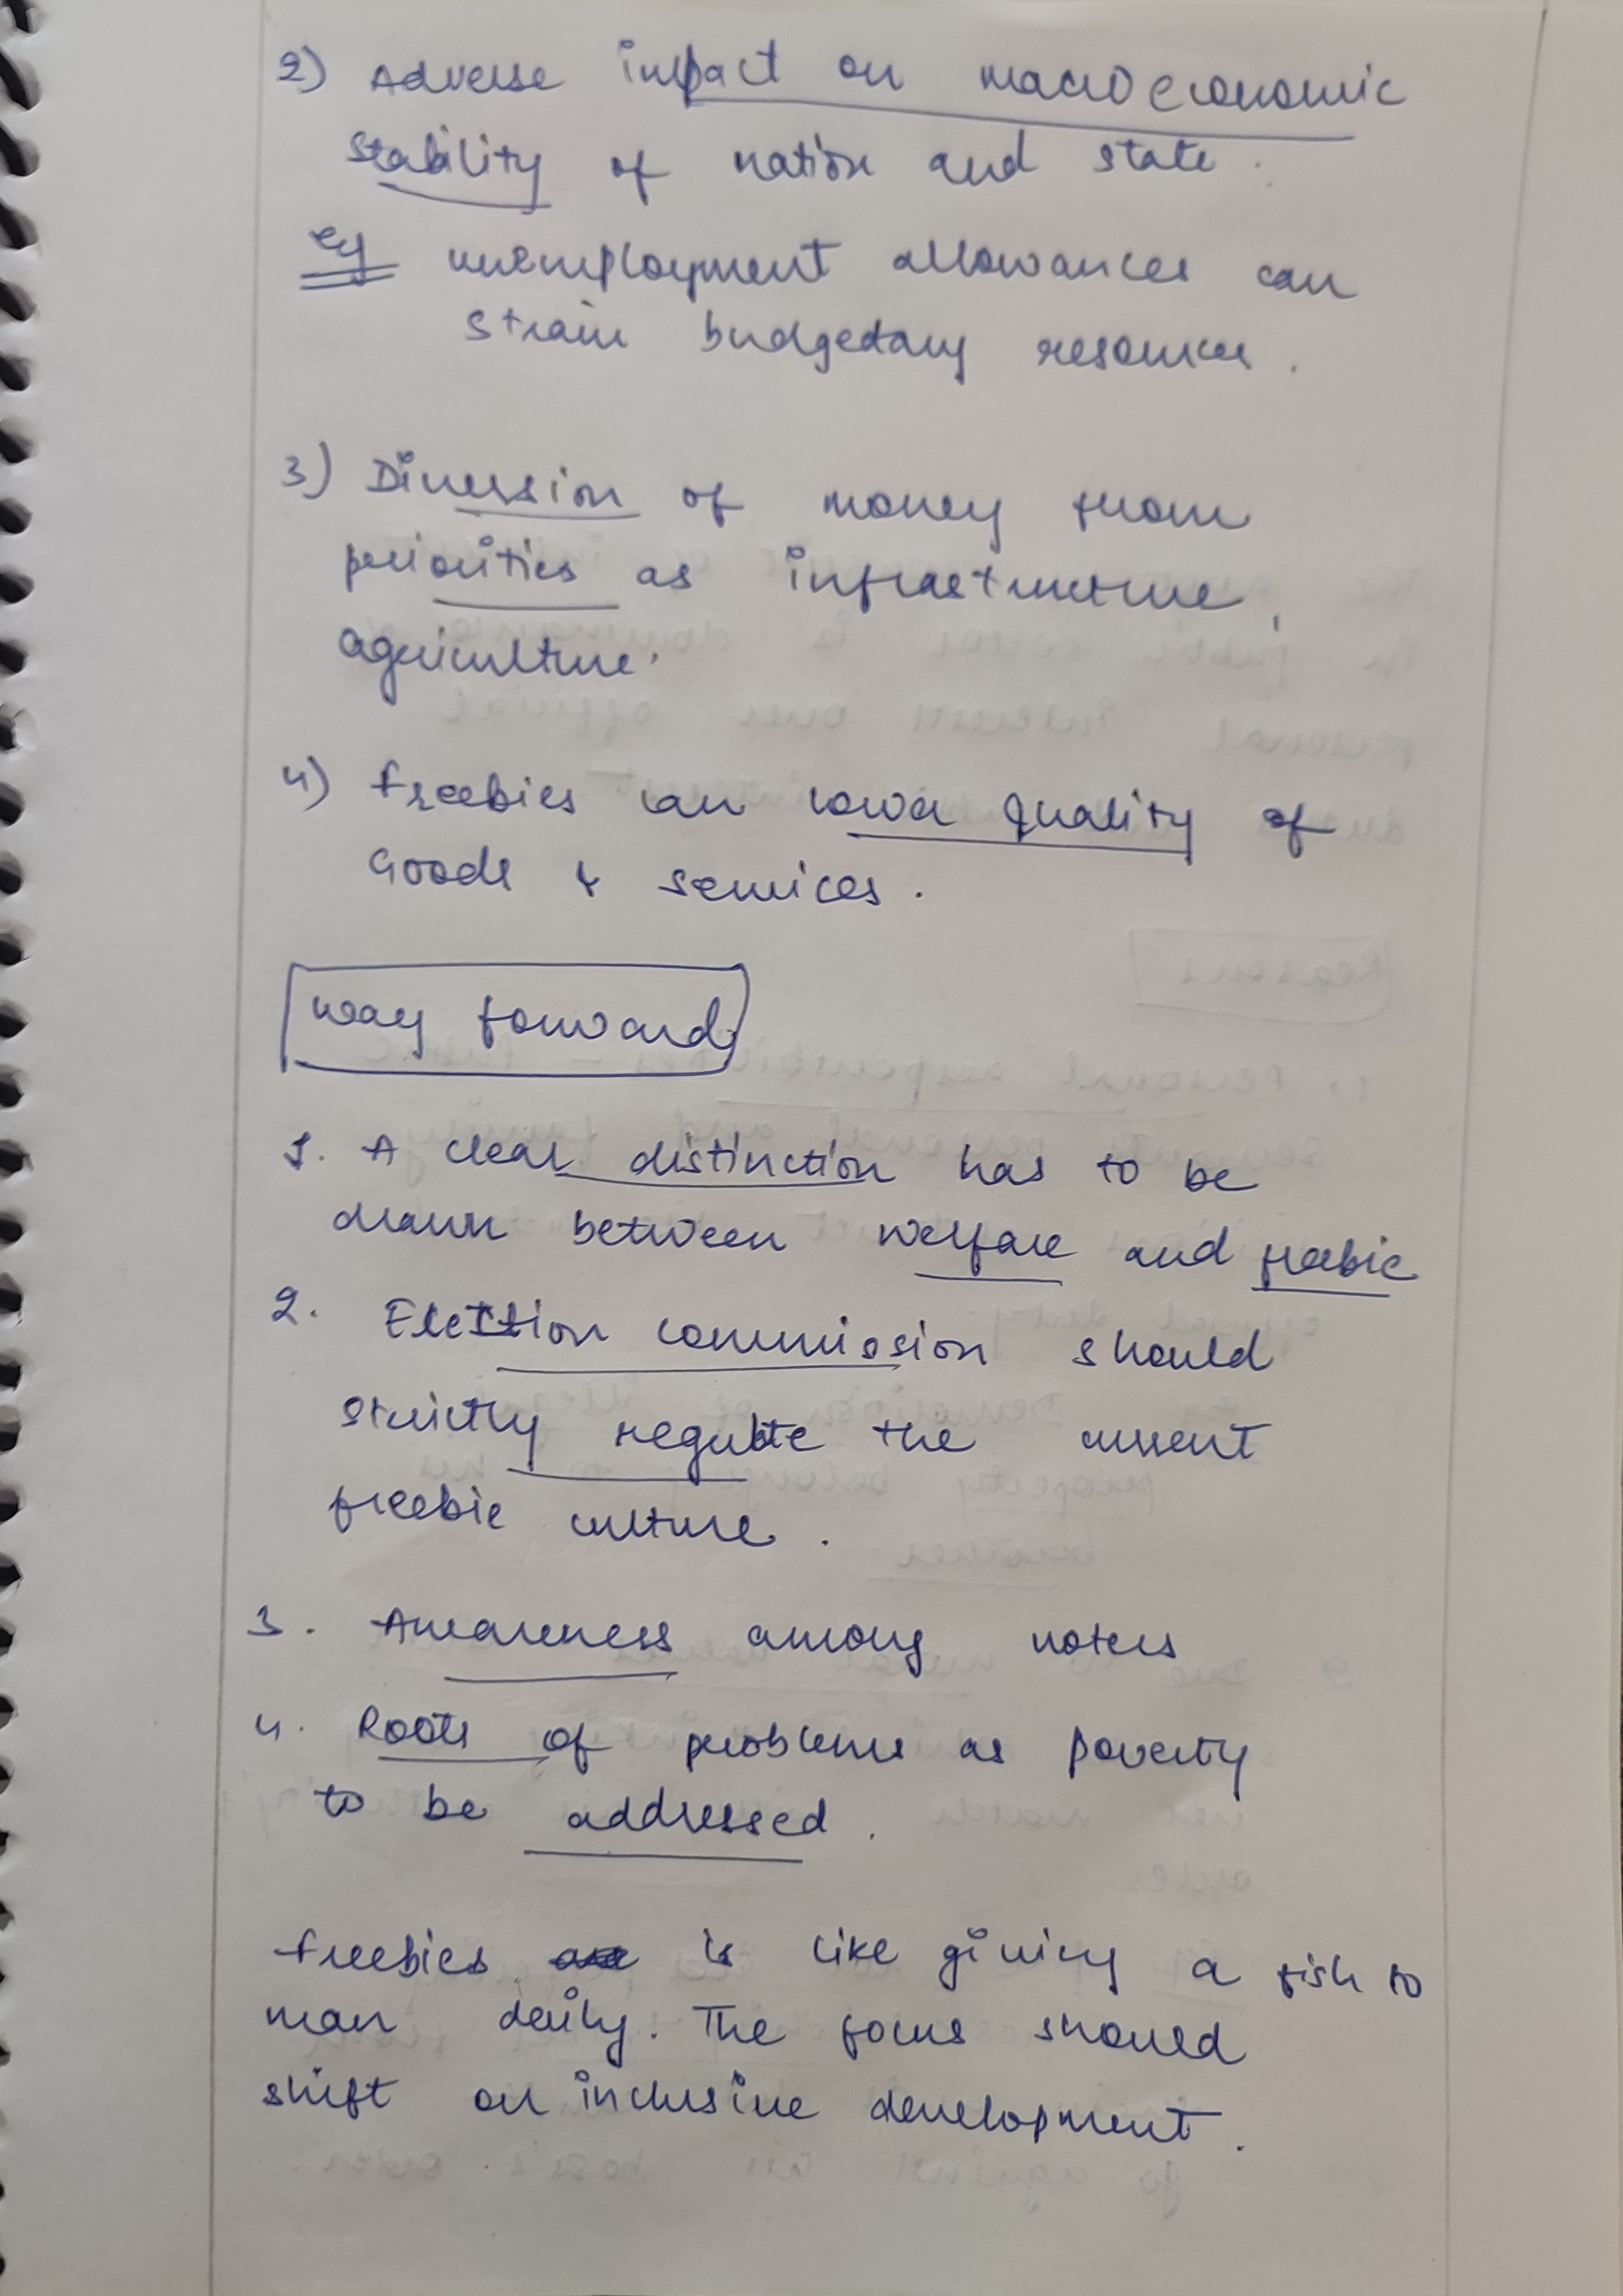 2) Adverse impact on macroeconomic
stability of nation and state.
eg unemployment allowances can
strain budgetary resources.
3) Diversion of money from
priorities as infrastructure,
agriculture.
4) Freebies can lower quality of
Goods & services.
Way forward
1. A clear distinction has to be
drawn between welfare and freebie
2. Election commission should
strictly regulate the current
freebie culture.
3. Awareness among voters
4. Roots of problems as poverty
to be addressed.
Freebies is like giving a fish to
man daily. The focus should
shift on inclusive development.